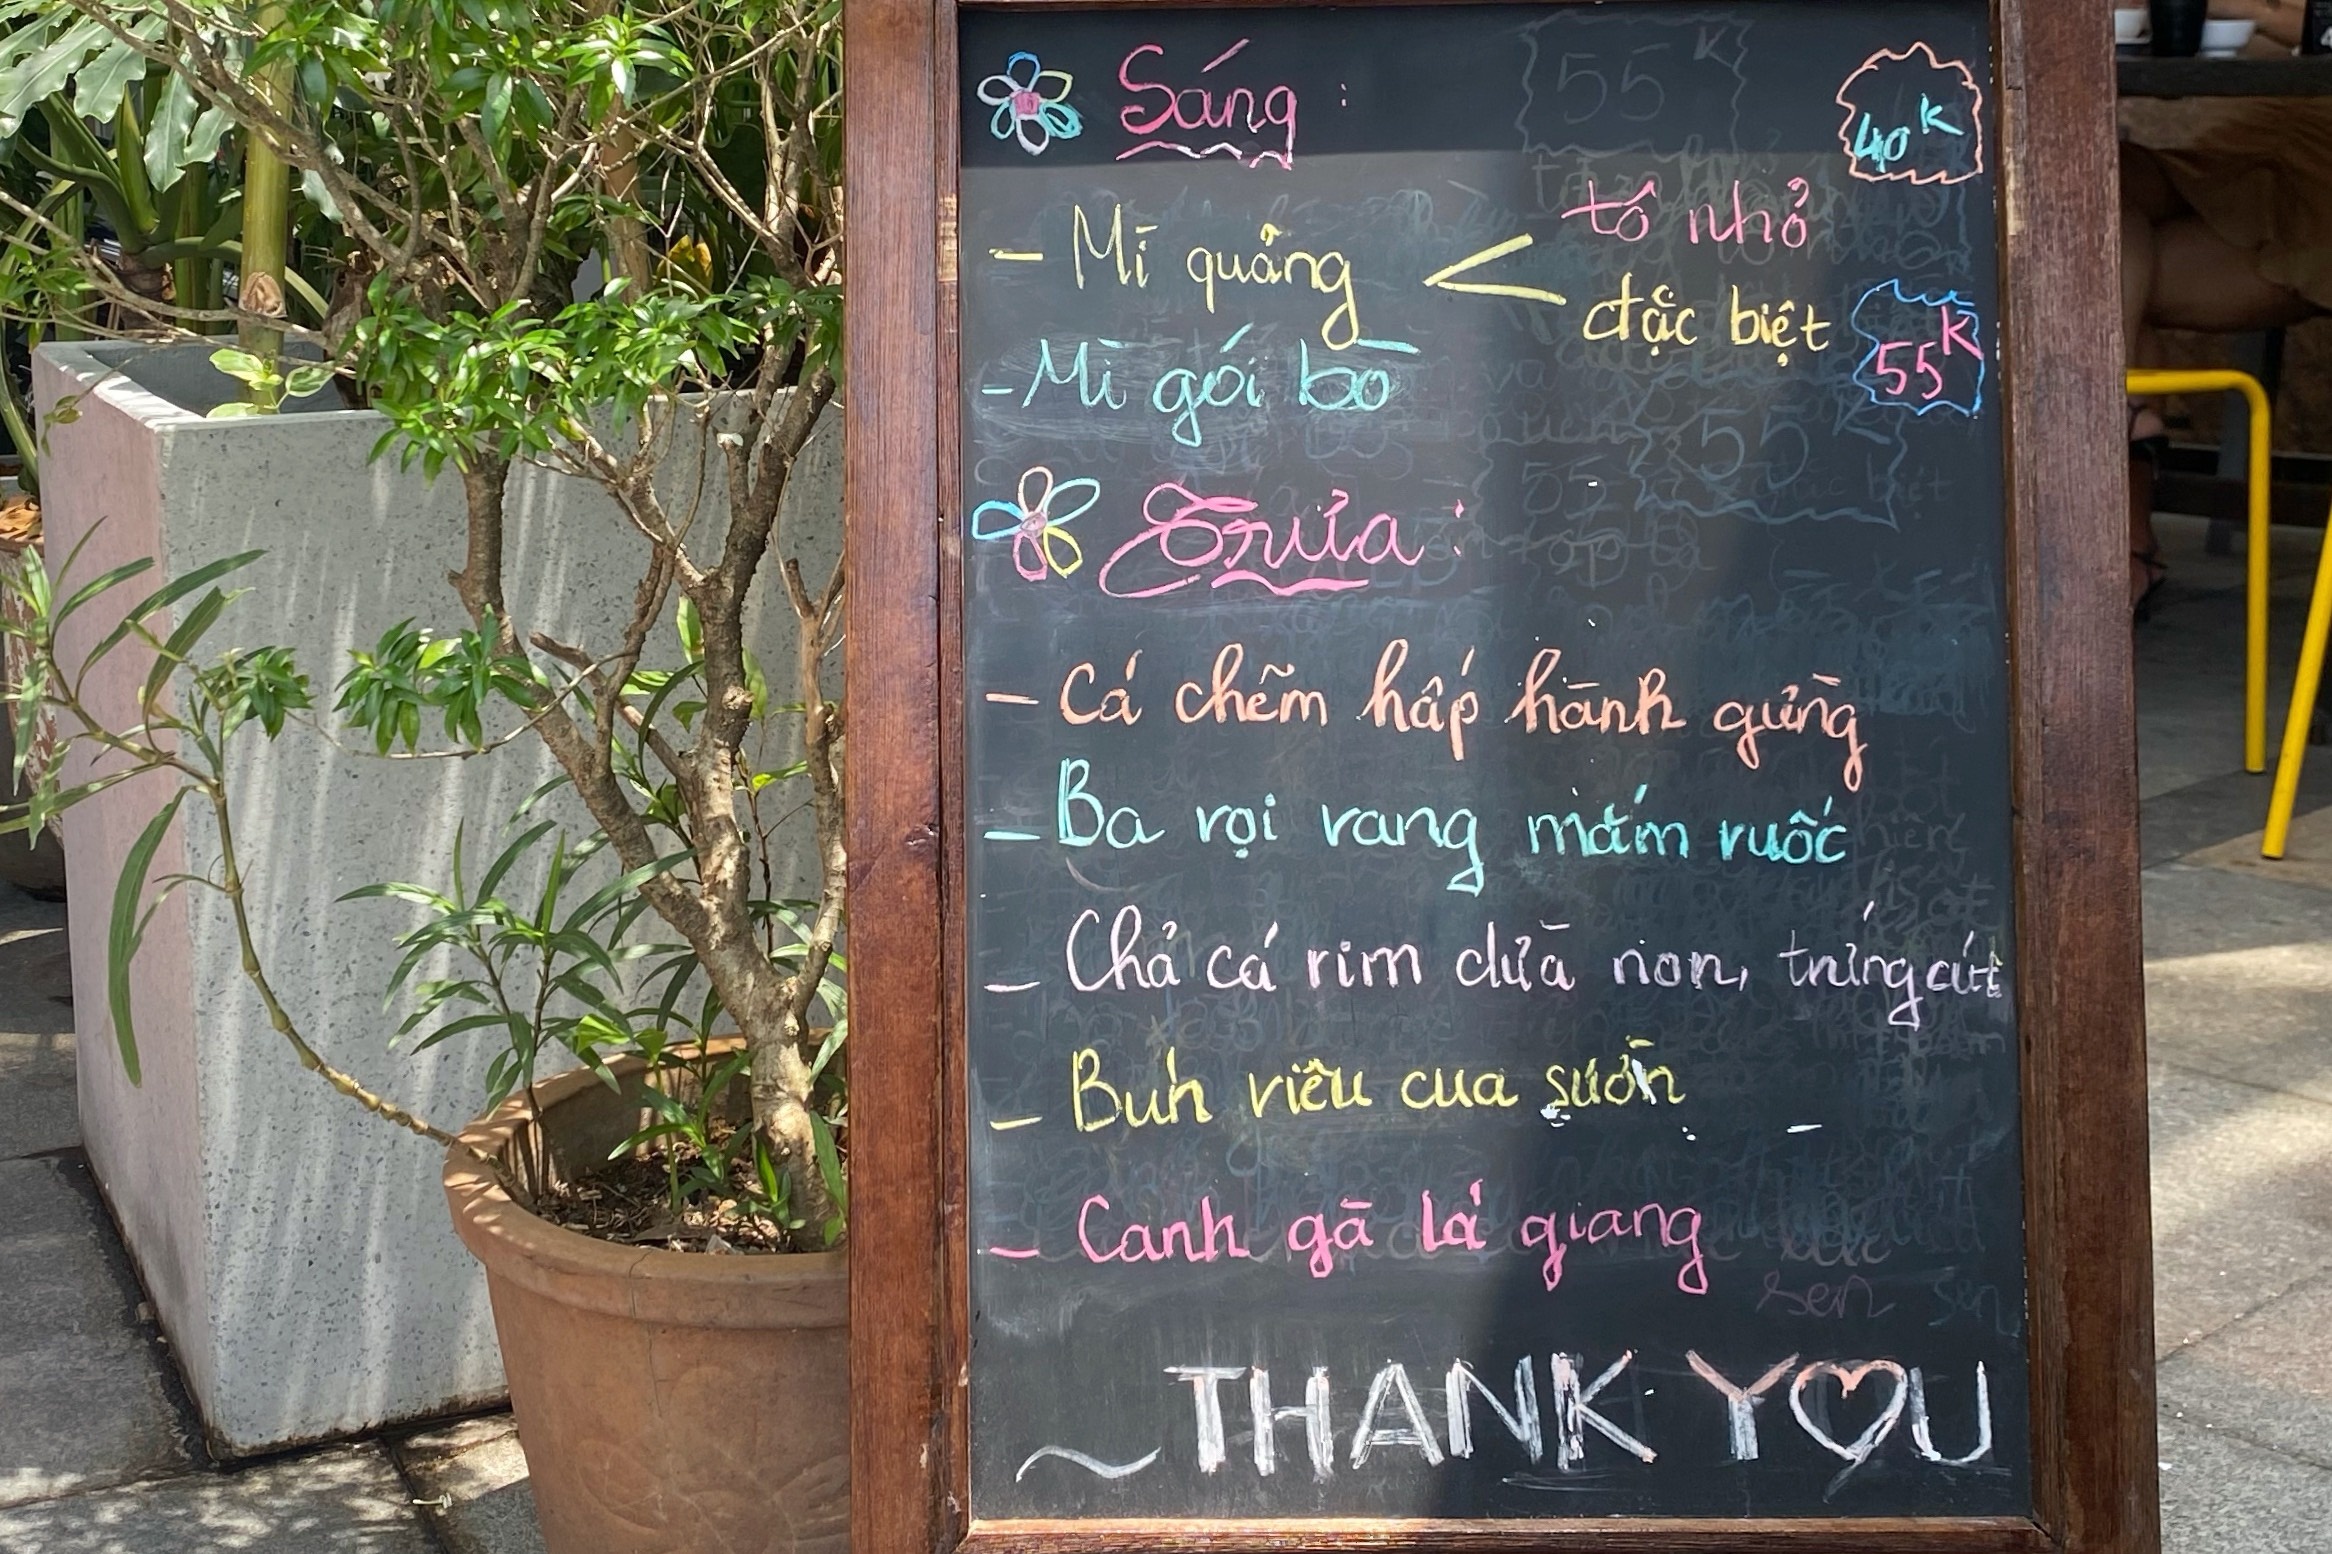 Sáng :
40K
Mì quảng < tô nhỏ
đặc biệt
55K
- Mì gói bò
Trưa :
- Cá chẽm hấp hành gừng
- Ba rọi rang mắm ruốc
- Chả cá rim dừa non, trứng cút
- Bún riêu cua sườn
- Canh gà lá giang
~ THANK YOU